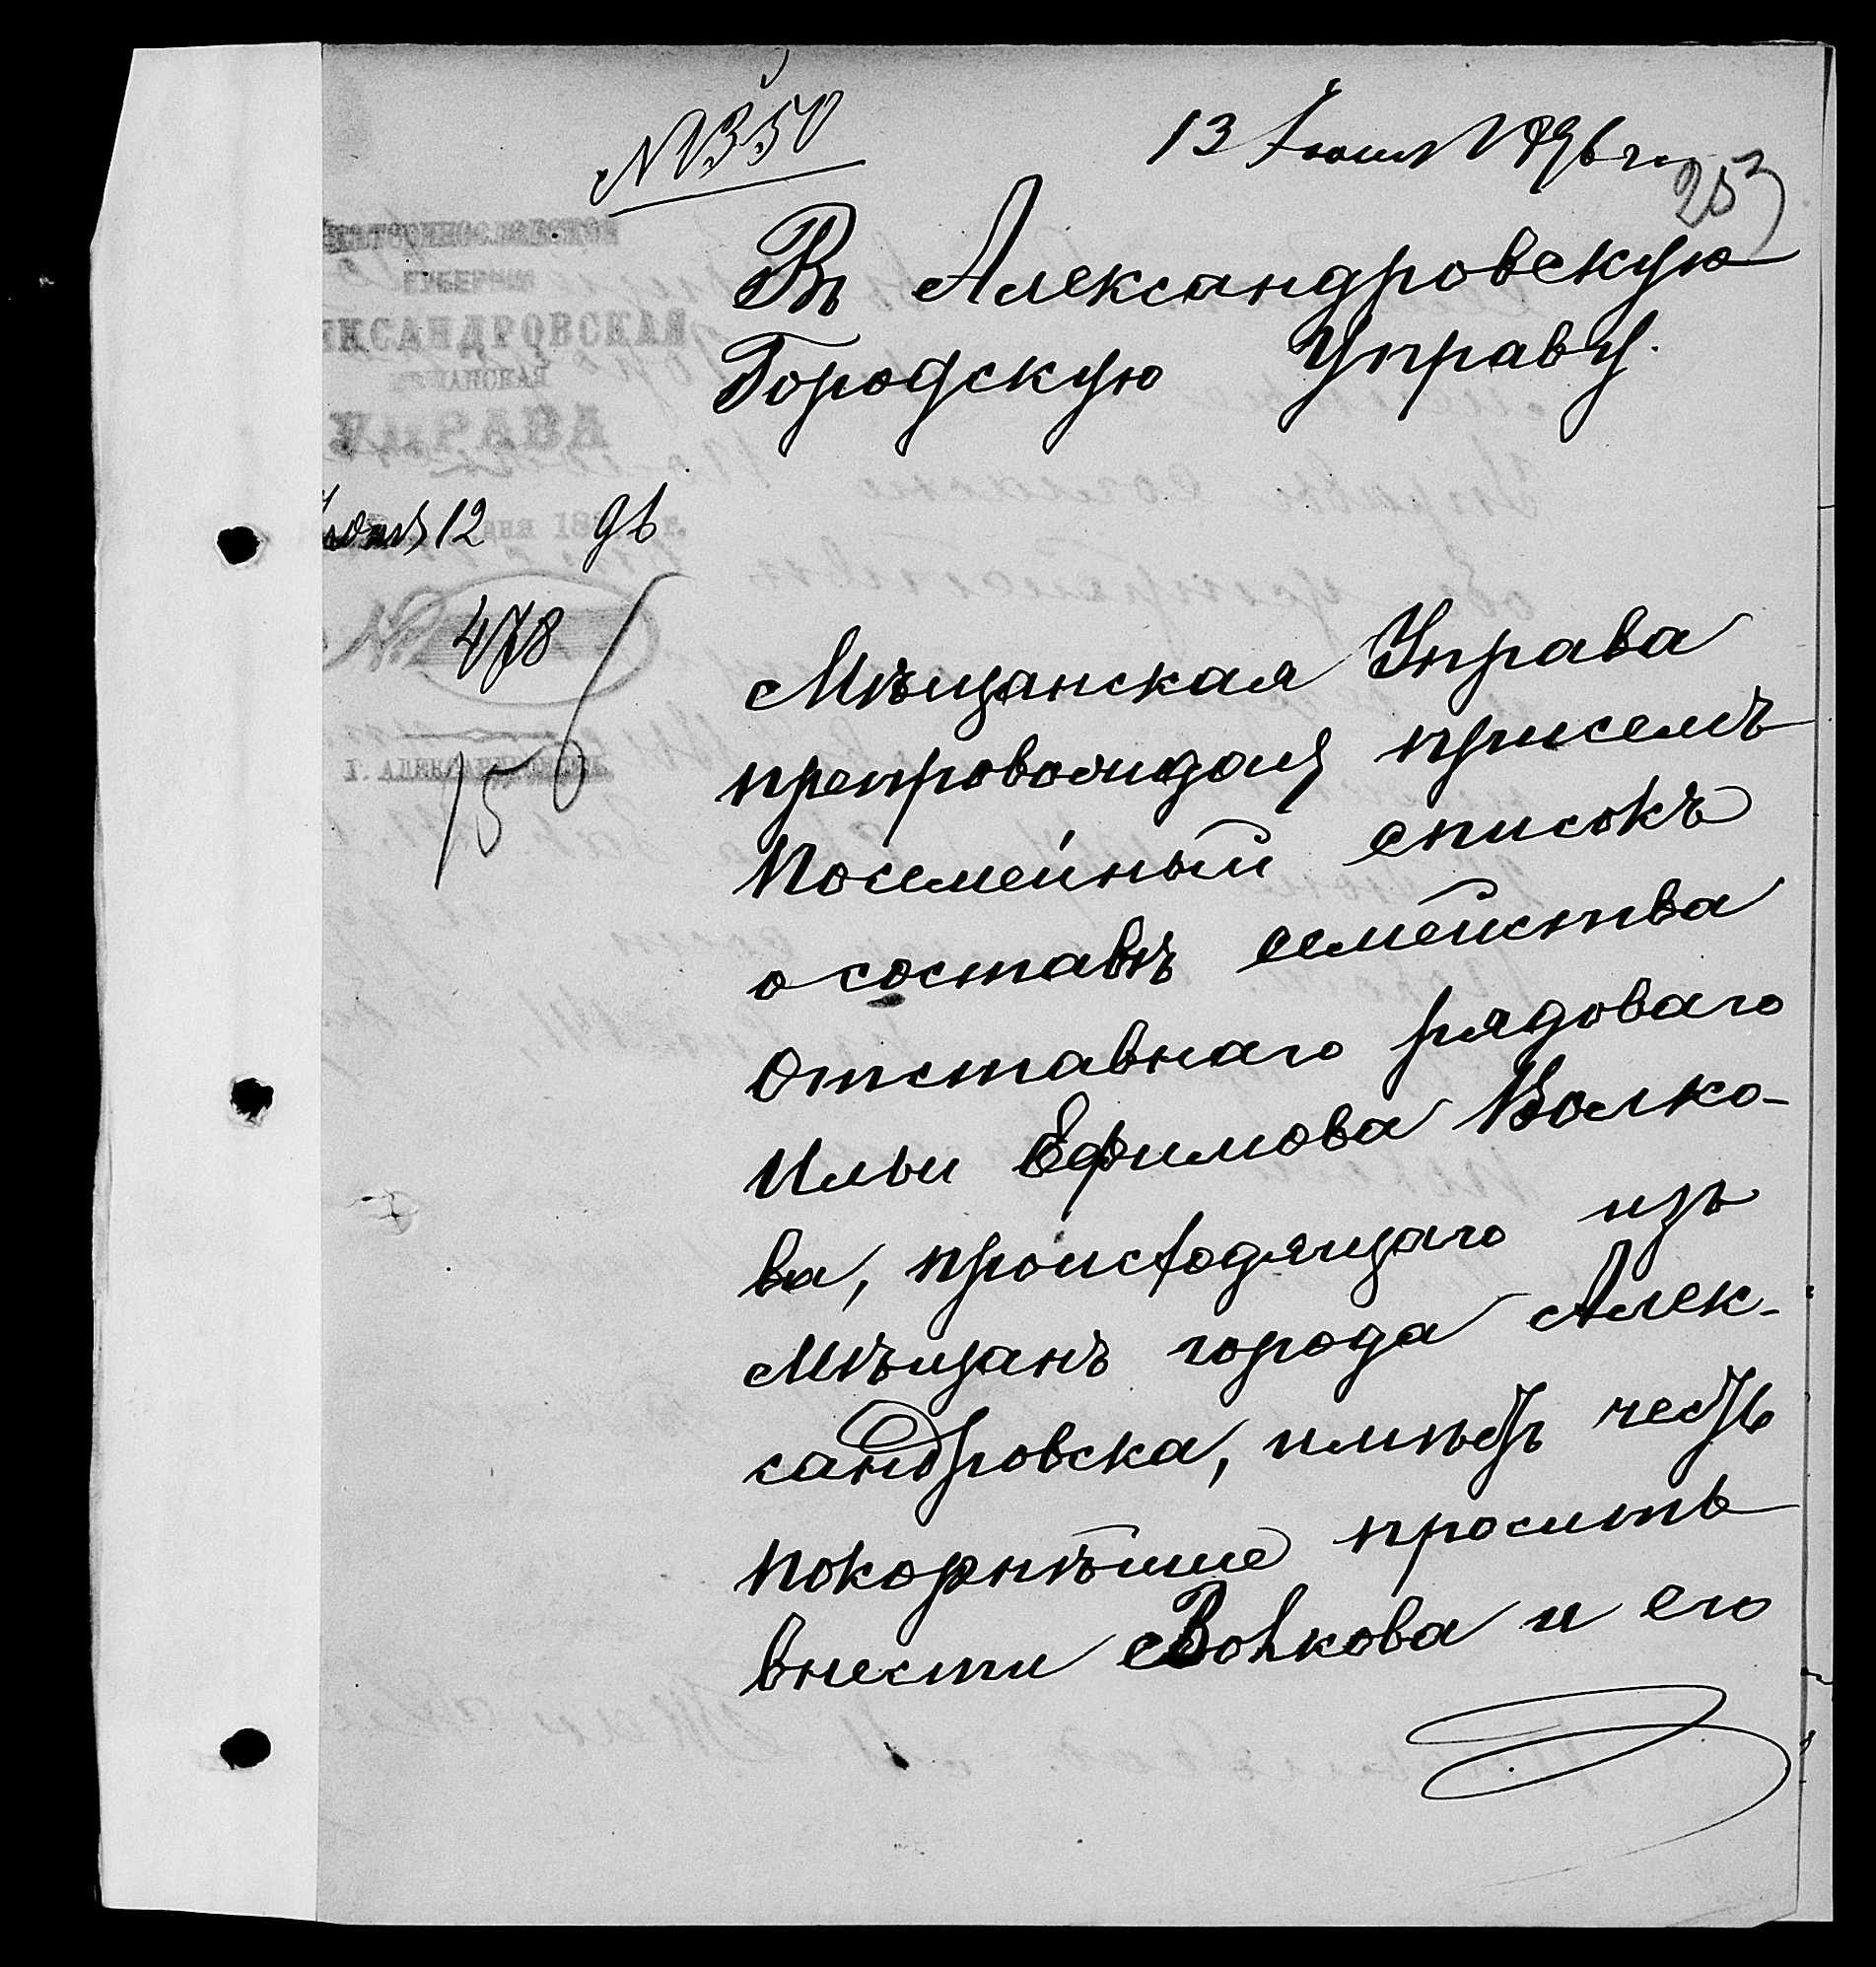 № 1350
13 Іюня 1896 г.
253
ЕКАТЕРИНОСЛАВСКОЙ
ГУБЕРНІИ
ЕКСАНДРОВСКАЯ
МѢЩАНСКАЯ
УПРАВА
Іюня 12 дня 1896 г.
№ 478
Г. АЛЕКСАНДРОВСКЪ.
156
Въ Александровскую
Городскую Управу.
Мѣщанская Управа
препровождая присемъ
Посемейный списокъ
о составѣ семейства
отставнаго рядоваго
Ильи Ефимова Волко-
ва, происходящаго изъ
Мѣщанъ города Алек-
сандровска, имѣетъ честь
покорнѣйше просить
внести Волкова и его